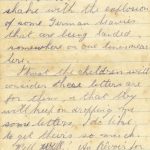 shake with the explosion
of some German
that are being landed
somewhere on our lines near
here.
I trust the children will
consider these letters are
for them, & that they
will keep on dropping me
some letters, I do like
to get them so much.
Well